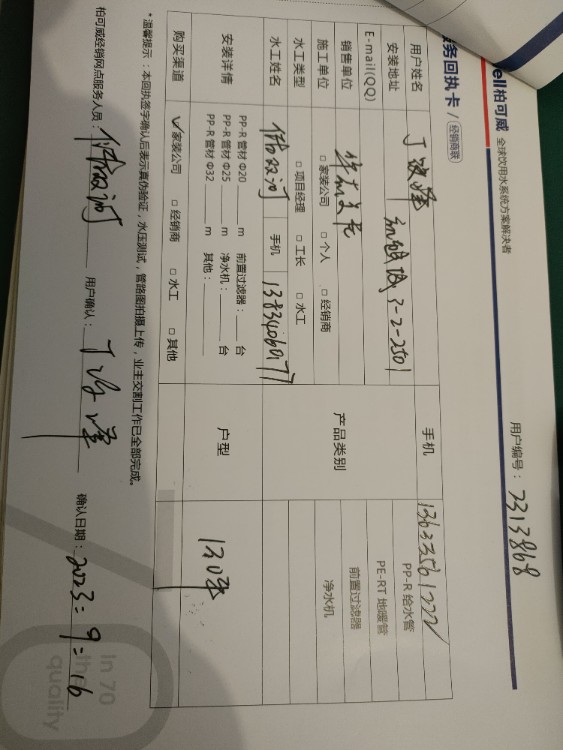 ell柏可威 全球饮用水系统方案解决者
用户编号：7313868
务回执卡 / 经销商联
用户姓名 丁 手机 13633561222
安装地址 3-2-2501
E-mail(QQ)
销售单位
产品类别 PP-R 给水管
PE-RT 地暖管
前置过滤器
净水机
施工单位 □ 家装公司 □ 个人 □ 经销商
水工类型 □ 项目经理 □ 工长 □ 水工
水工姓名 双河 手机 13834060177
安装详情 PP-R 管材 Φ20 m 前置过滤器： 台
PP-R 管材 Φ25 m 净水机： 台
PP-R 管材 Φ32 m 其他：
户型 130
购买渠道 ✓家装公司 □ 经销商 □ 水工 □ 其他
*温馨提示：本回执签字确认后表示真伪验证，水压测试，管路图拍摄上传，业主交割工作已全部完成。
柏可威经销网点服务人员： 双河 用户确认：丁 确认日期：2023=9=16
In 70
the
quality